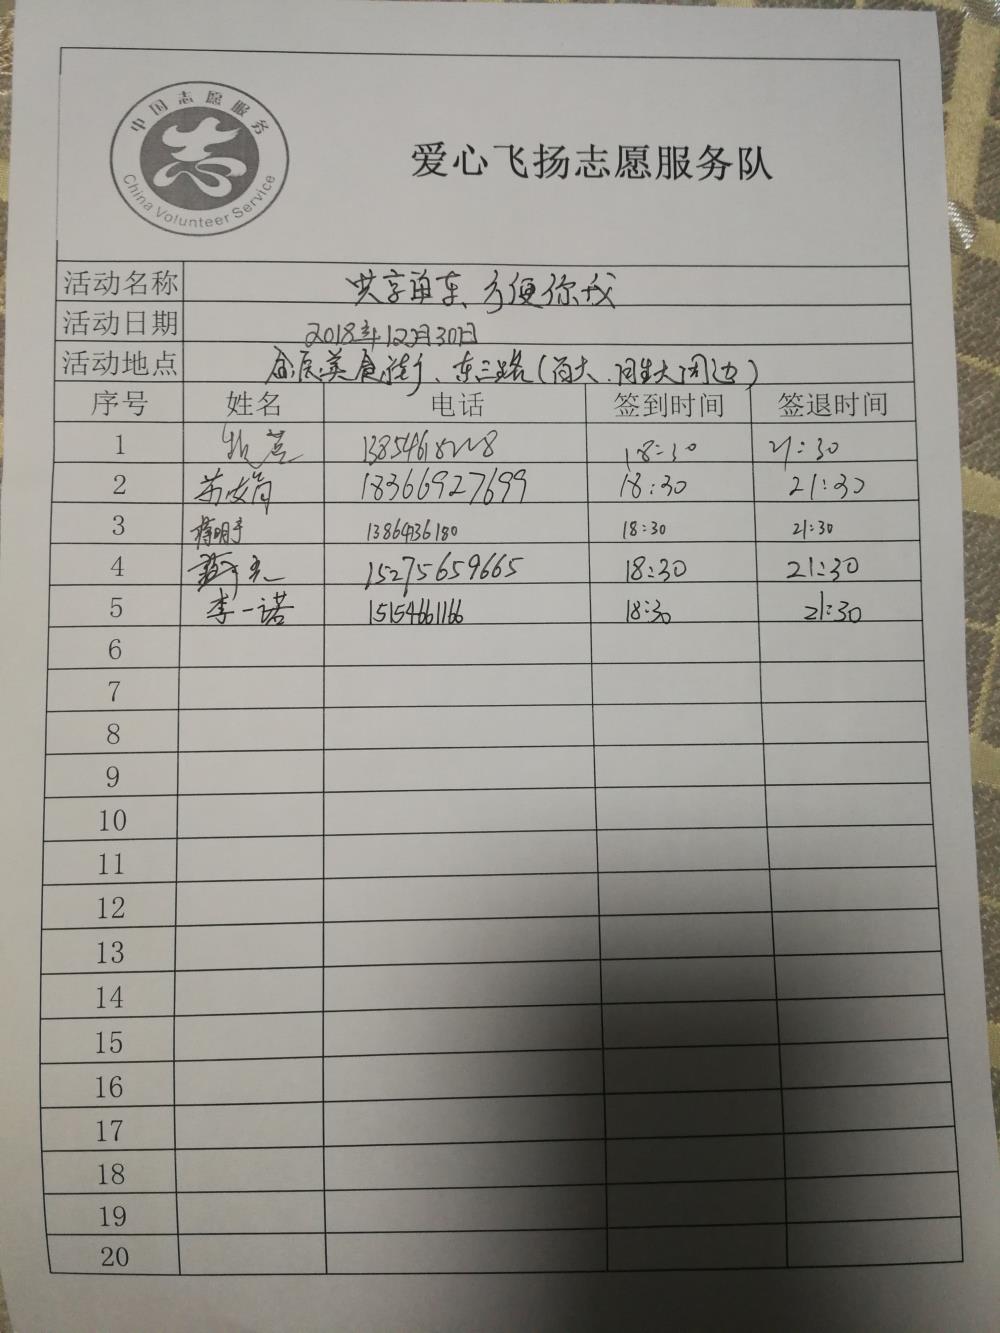 中国志愿服务
China Volunteer Service
爱心飞扬志愿服务队
活动名称 共享单车、方便你我
活动日期 2018年12月30日
活动地点 美食街、东三路(百大、周边)
序号 姓名 电话 签到时间 签退时间
1 18:30 21:30
2 18366927699 18:30 21:30
3 18:30 21:30
4 15275659665 18:30 21:30
5 李一诺 15154661166 18:30 21:30
6
7
8
9
10
11
12
13
14
15
16
17
18
19
20